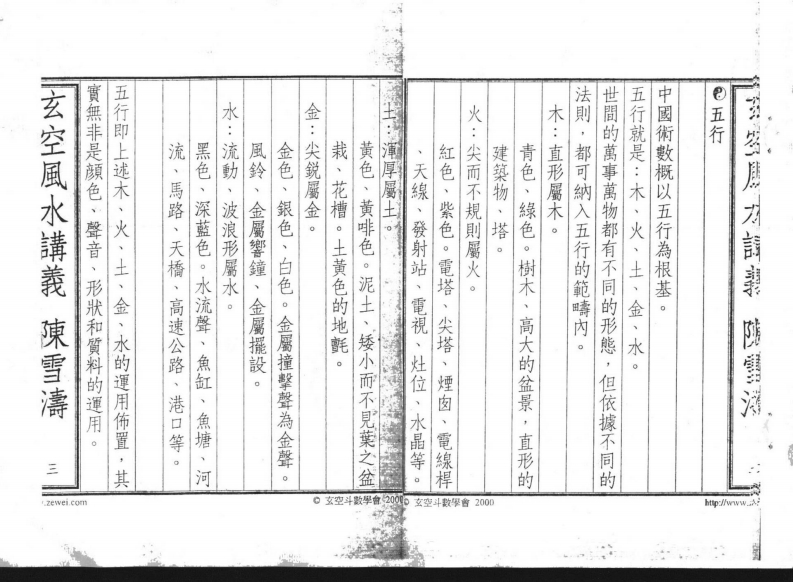 玄空風水講義 陳雪濤
☯五行
中國術數概以五行為根基。
五行就是：木、火、土、金、水。
世間的萬事萬物都有不同的形態，但依據不同的
法則，都可納入五行的範疇內。
木：直形屬木。
青色、綠色。樹木、高大的盆景，直形的
建築物、塔。
火：尖而不規則屬火。
紅色、紫色。電塔、尖塔、煙囪、電線桿
、天線、發射站、電視、灶位、水晶等。
© 玄空斗數學會 2000
http://www.
土：渾厚屬土。
黃色、黃啡色。泥土、矮小而不見葉之盆
栽、花槽。土黃色的地氈。
金：尖銳屬金。
金色、銀色、白色。金屬撞擊聲為金聲。
風鈴、金屬響鐘、金屬擺設。
水：流動、波浪形屬水。
黑色、深藍色。水流聲、魚缸、魚塘、河
流、馬路、天橋、高速公路、港口等。
五行即上述木、火、土、金、水的運用佈置，其
實無非是顏色、聲音、形狀和質料的運用。
玄空風水講義 陳雪濤
三
© 玄空斗數學會 2000
.zewei.com